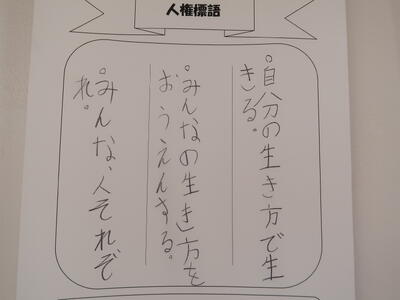 人権標語
。自分の生き方で生
きる。
。みんなの生き方を
おうえんする。
。みんな、人それぞ
れ。